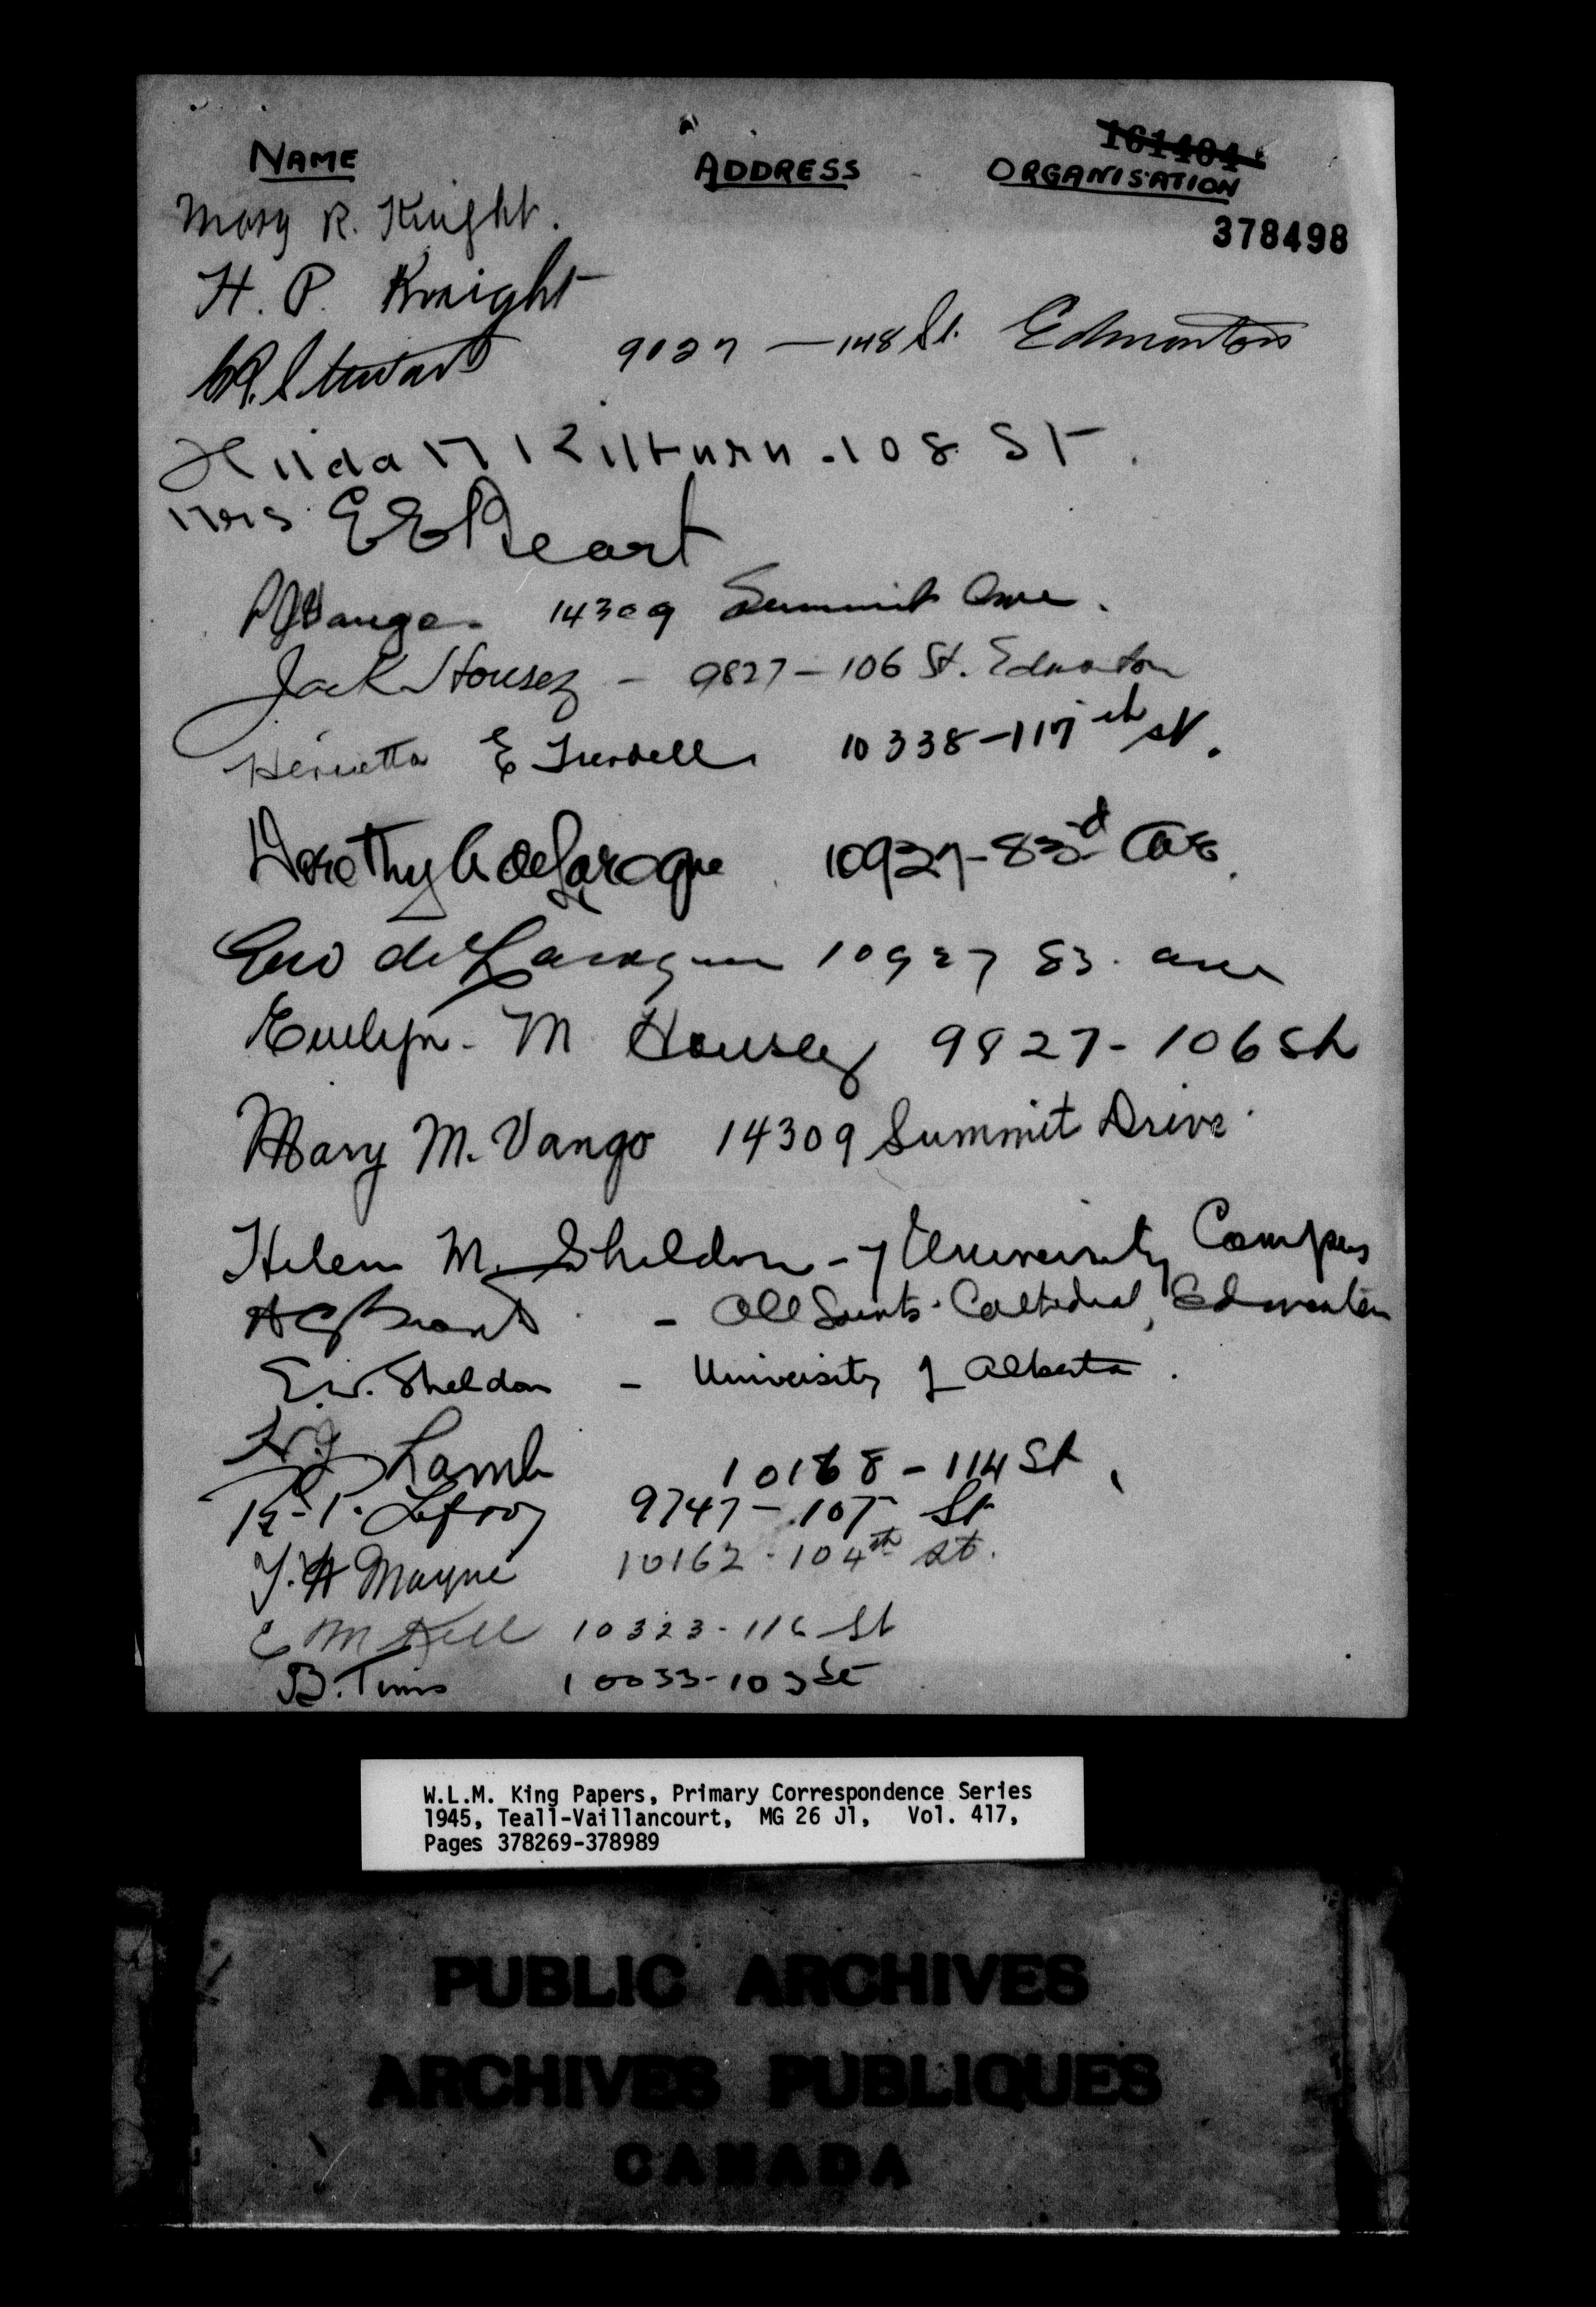 161404
NAME ADDRESS ORGANISATION
378498
Mary R. Knight.
H. P. Knight
Stewart 9027 — 148 St. Edmonton
Hilda 108 St.
Mrs E E Peart
Vango. 14309 Summit Ave.
Jack Housez - 9827 - 106 St. Edmonton
Henrietta E 10338 - 117th St.
Dorothy de Laroque 10927 - 83rd Ave.
Geo de Laroque 10927 83. Ave
Evelyn. M Housez 9827 - 106 St
Mary M. Vango 14309 Summit Drive
Helen M. Sheldon - University Campus
- All Saints Cathedral, Edmonton
E.W. Sheldon - University of Alberta.
Lamb 10168 - 114 St.
Lefroy 9747 - 107 St
Mayne 10162 - 104th St.
E M 10323 - 116 St
B. Tims 10033 - 103 St
W.L.M. King Papers, Primary Correspondence Series
1945, Teall-Vaillancourt, MG 26 J1, Vol. 417,
Pages 378269-378989
PUBLIC ARCHIVES
ARCHIVES PUBLIQUES
CANADA